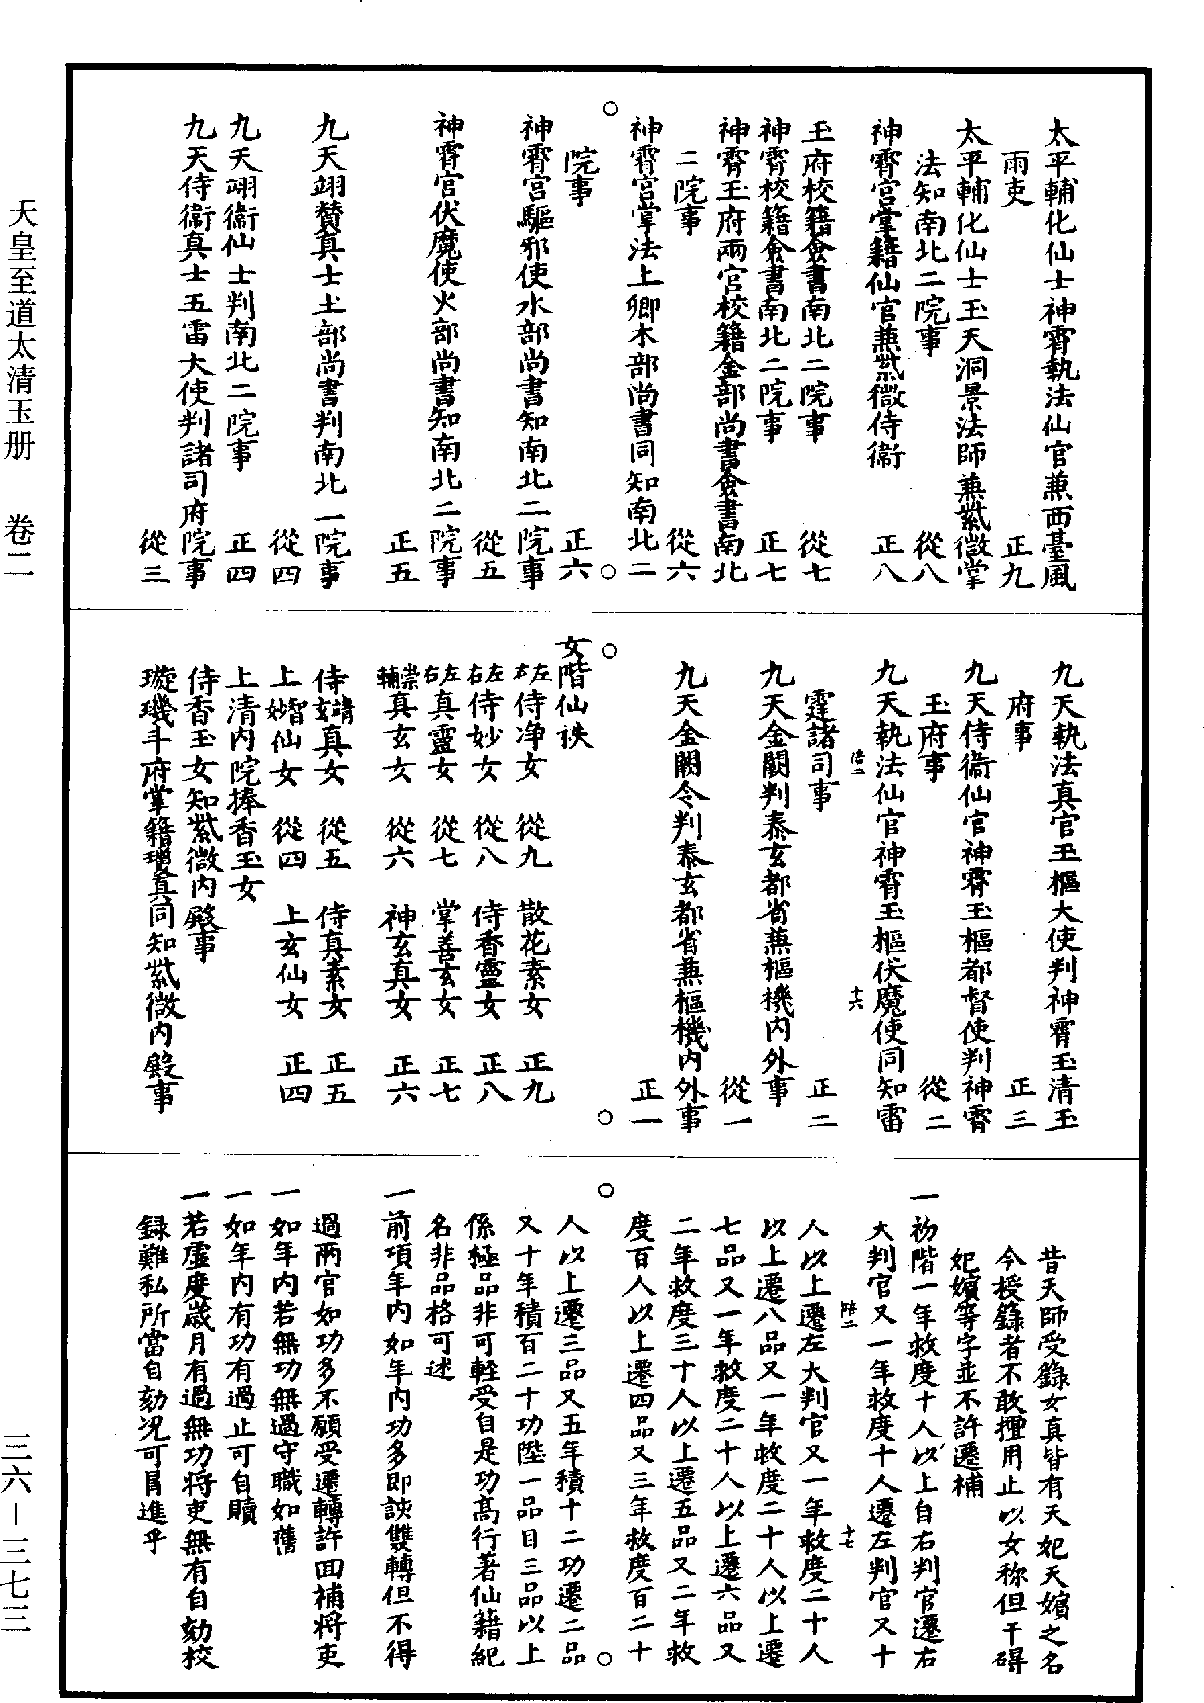 太平輔化仙士神霄執法仙官兼西臺風
雨吏　正九
太平輔化仙士玉天洞景法師兼紫微掌
法知南北二院事　從八
神霄宮掌籍仙官兼紫微侍衞　正八
玉府校籍僉書南北二院事　從七
神霄校籍僉書南北二院事　正七
神霄玉府兩宮校籍金部尚書僉書南北
二院事　從六
神霄宮掌法上卿木部尚書同知南北二
院事　正六
神霄宮驅邪使水部尚書知南北二院事
從五
神霄宮伏魔使火部尚書知南北二院事
正五
九天翊贊真士土部尚書判南北一院事
從四
九天翊衞仙士判南北二院事　正四
九天侍衞真士五雷大使判諸司府院事
從三
九天執法真官玉樞大使判神霄玉清玉
府事　正三
九天侍衞仙官神霄玉樞都督使判神霄
玉府事　從二
九天執法仙官神霄玉樞伏魔使同知雷
霆諸司事　正二
陸二　十六
九天金闕判泰玄都省兼樞機內外事
從一
九天金闕令判泰玄都省兼樞機內外事
正一
女階仙秩
左右侍净女　從九　散花素女　正九
左右侍妙女　從八　侍香靈女　正八
左右真靈女　從七　掌善玄女　正七
崇輔真玄女　從六　神玄真女　正六
侍靖玄真女　從五　侍真素女　正五
上智妙仙女　從四　上玄仙女　正四
上清內院捧香玉女
侍香玉女知紫微內殿事
璇璣斗府掌籍瓊真同知紫微內殿事
昔天師受錄女真皆有天妃天嬪之名
今授錄者不敢擅用止以女称但干碍
妃嬪等字並不許遷補
一初階一年救度十人以上自右判官遷右
大判官又一年救度十人遷左判官又十
陸二　十七
人以上遷左大判官又一年救度二十人
以上遷八品又一年救度二十人以上遷
七品又一年救度二十人以上遷六品又
二年救度三十人以上遷五品又二年救
度百人以上遷四品又三年救度百二十
人以上遷三品又五年積十二功遷二品
又十年積百二十功陞一品目三品以上
係極品非可輕受自是功高行著仙籍紀
名非品格可述
一前項年內如年內功多即許雙轉但不得
過兩官如功多不願受遷轉許回補將吏
一如年內若無功無過守職如舊
一如年內有功有過止可自贖
一若虛度歲月有過無功將吏無有自劾校
錄難私所當自劾况可冒進乎
天皇至道太清玉册　卷二
三六－三七三